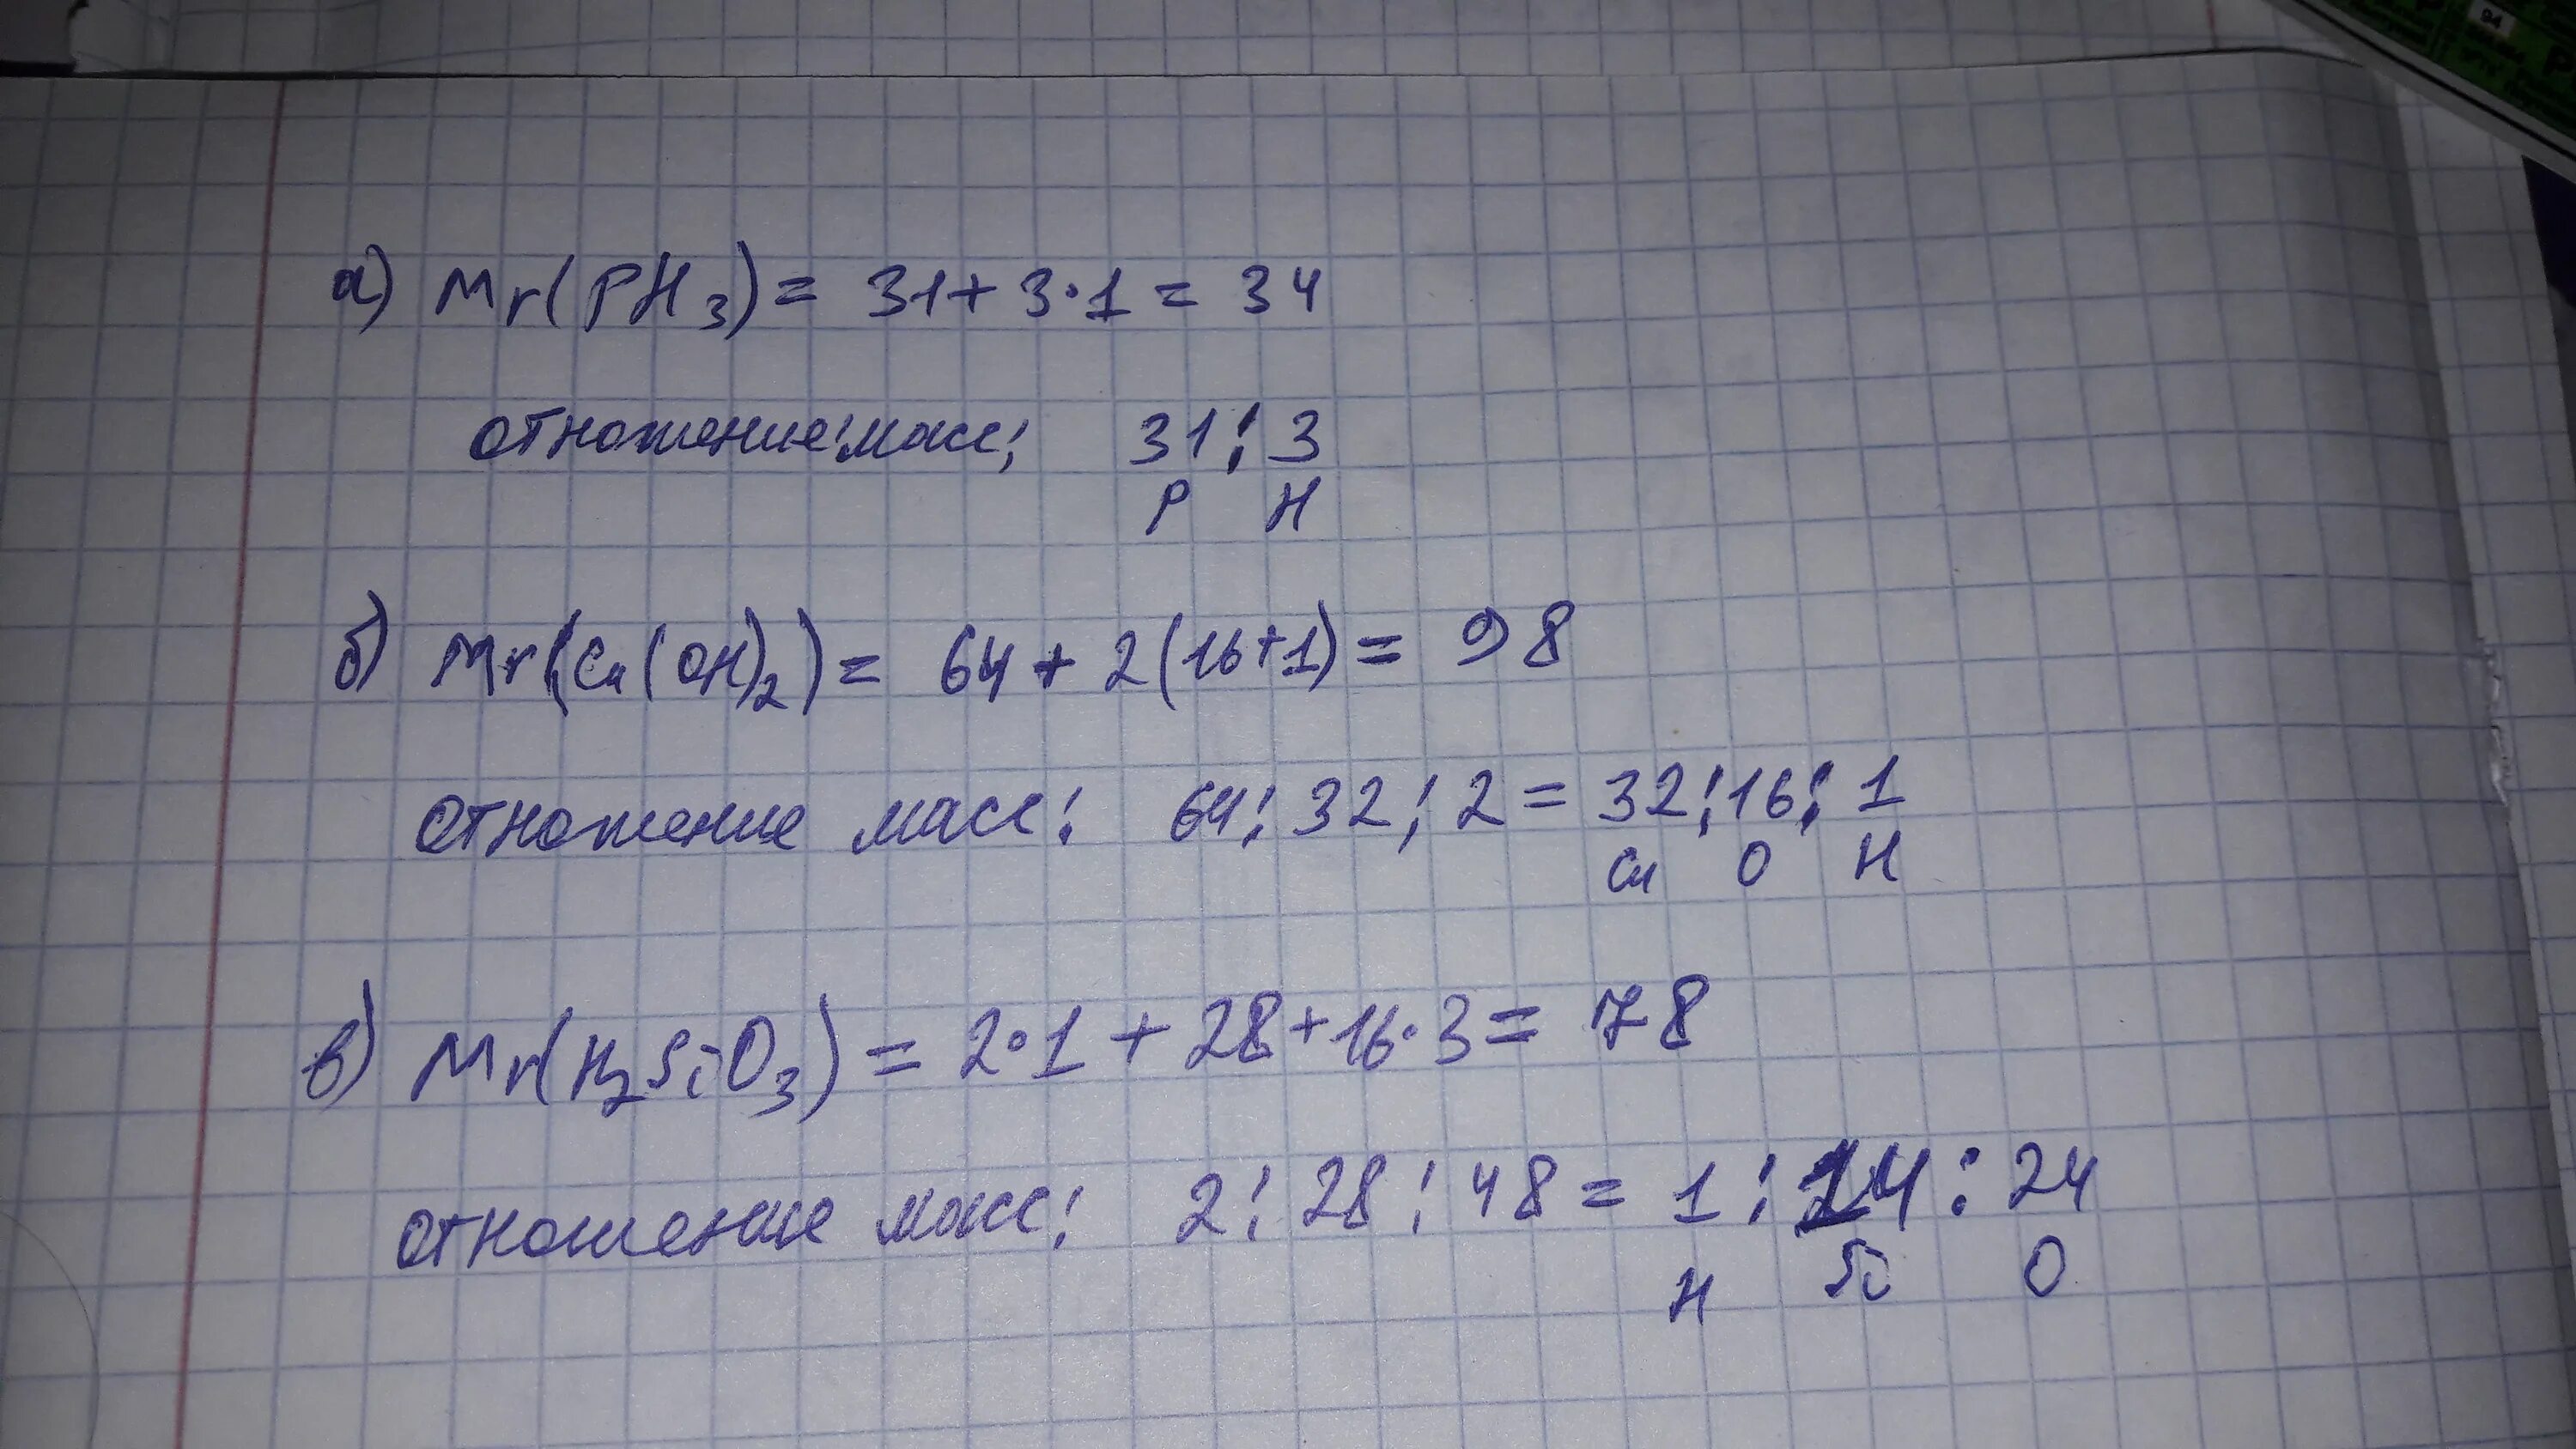 94
а) Mr(PH3) = 31 + 3·1 = 34
отношение масс: 31 : 3
P H
б) Mr(Cu(OH)2) = 64 + 2(16+1) = 98
отношение масс: 64 : 32 : 2 = 32 : 16 : 1
Cu O H
в) Mr(H2SiO3) = 2·1 + 28 + 16·3 = 78
отношение масс: 2 : 28 : 48 = 1 : 14 : 24
H Si O